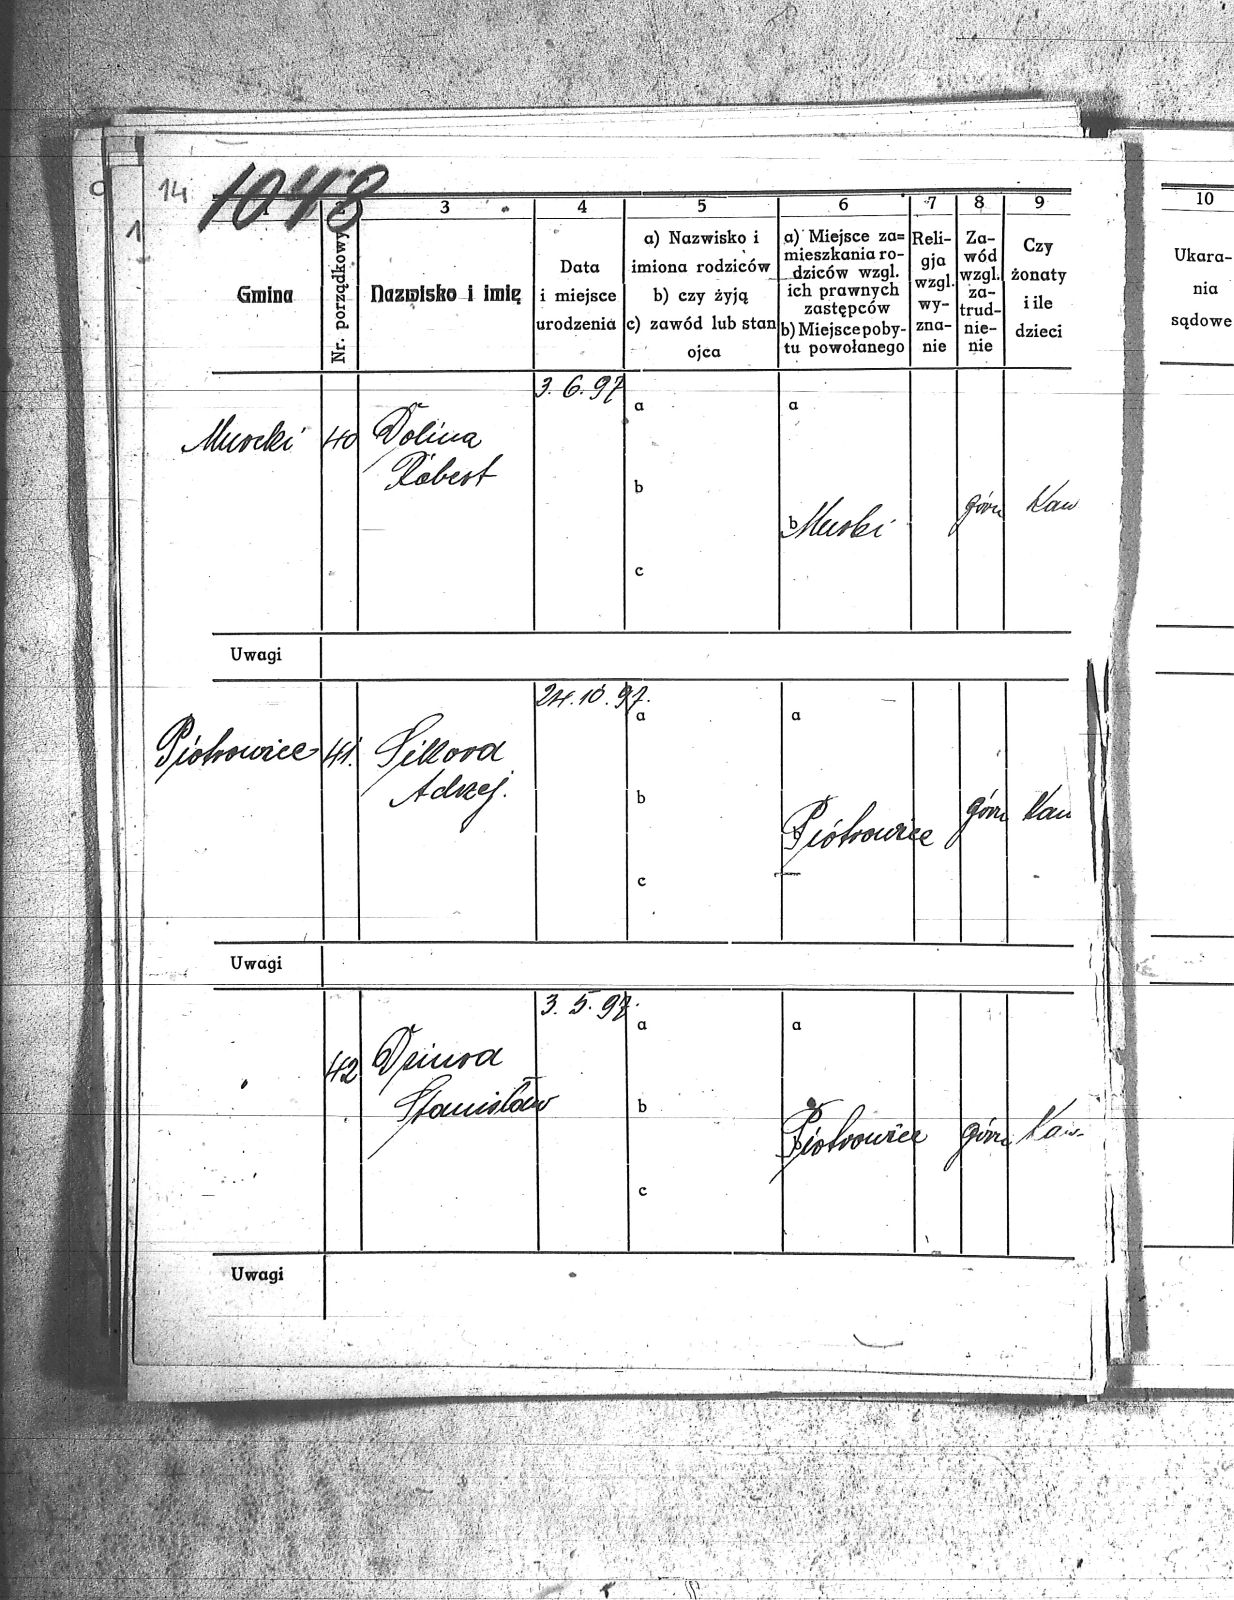 14
1048
1
1 2 3 4 5 6 7 8 9 10
Gmina
Nr. porządkowy
Nazwisko i imię
Data
i miejsce
urodzenia
a) Nazwisko i
imiona rodziców
b) czy żyją
c) zawód lub stan
ojca
a) Miejsce za=
mieszkania ro-
dziców wzgl.
ich prawnych
zastępców
b) Miejsce poby-
tu powołanego
Reli-
gja
wzgl.
wy-
zna-
nie
Za-
wód
wzgl.
za-
trud-
nie-
nie
Czy
żonaty
i ile
dzieci
Ukara-
nia
sądowe
3. 6. 97
a a
Murcki 40 Dolina
Robert
b
b Murcki górn Kaw
c
Uwagi
24. 10. 97.
a a
Piotrowice 41. Sikora
Adrzej.
b
b Piotrowice górn Kaw
c
Uwagi
3. 5. 97.
a a
42 Dziura
Stanisław
b
b Piotrowice górn Kaw.
c
Uwagi